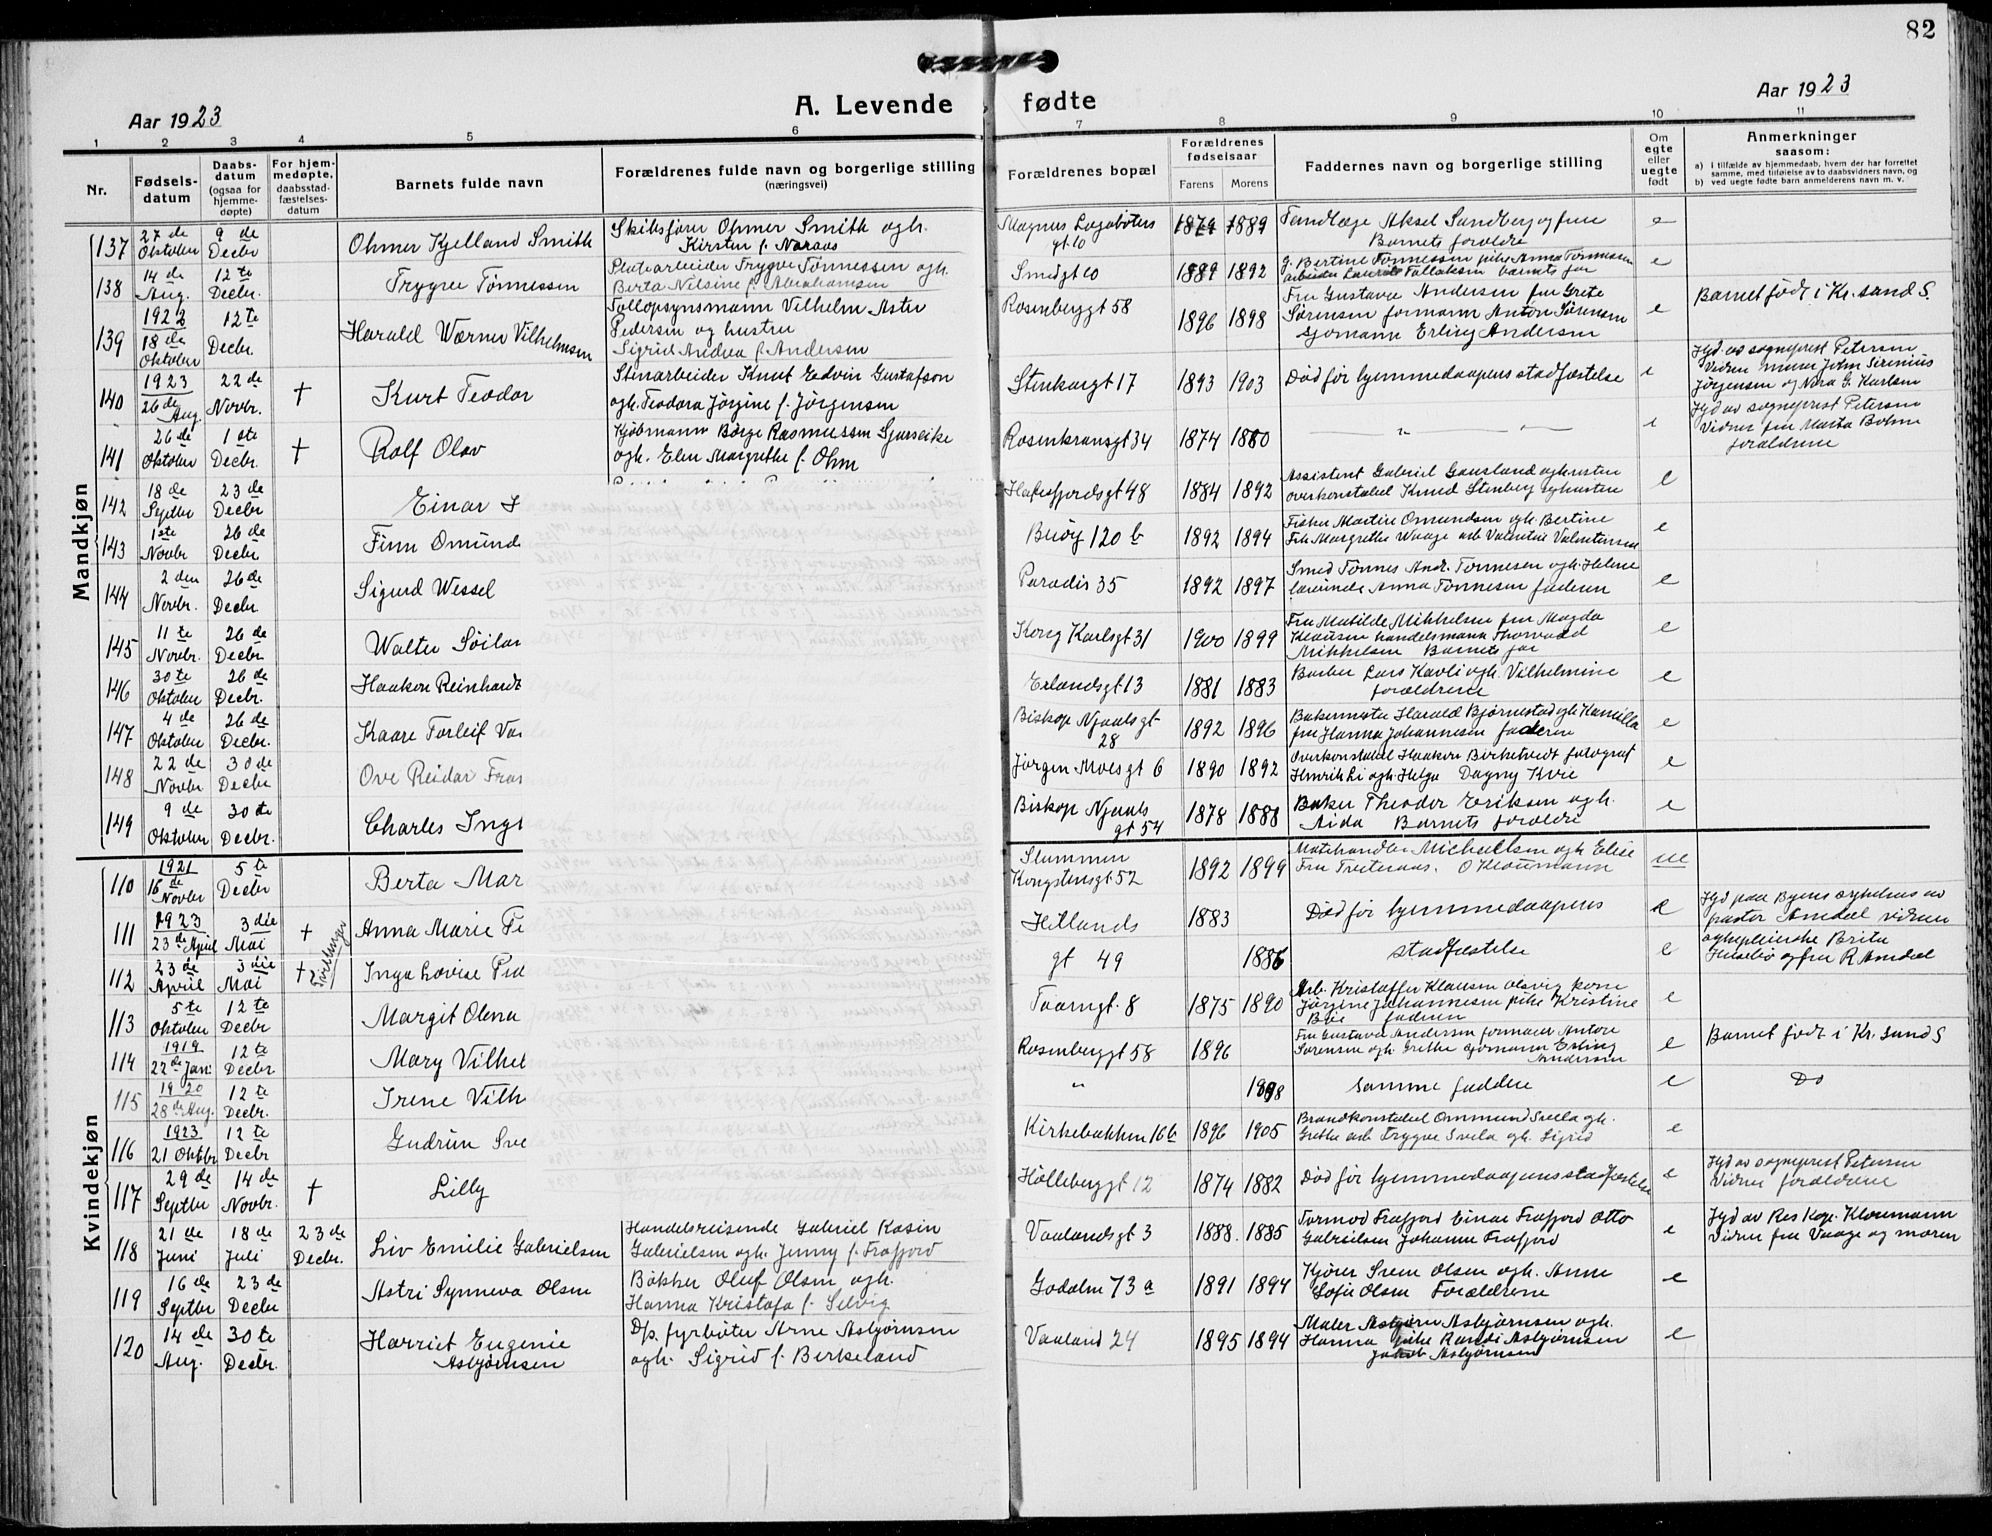 82
Aar 1923
A. Levende fødte
Aar 1923
1 2 3 4 5 6 7 8 9 10 11
Nr.
Fødsels-
datum
Daabs-
datum
(ogsaa for
hjemme-
døpte)
For hjem-
medøpte,
daabsstad-
fæstelses-
datum
Barnets fulde navn
Forældrenes fulde navn og borgerlige stilling
(næringsvei)
Forældrenes bopæl
Forældrenes
fødselsaar
Farens
Morens
Faddernes navn og borgerlige stilling
Om
egte
eller
uegte
født
Anmerkninger
saasom:
a) i tilfælde av hjemmedaab, hvem der har forrettet
samme, med tilføielse av to daabsvidners navn, og
b) ved uegte fødte barn anmelderens navn m. v.
Mandkjøn
137 27 de Oktober 9 de Decbr Ohmer Kjelland Smith
Skibsfører Ohmer Smith ogh.
Kirsten f. Naraas
Magnus Lagabøters
gt. 10
1889
Tandlæge Aksel Sandberg og frue
Barnets forældre
e
138 14 de Aug. 12 te Decbr. Trygve Tønnessen
Platearbeider Trygve Tønnessen ogh.
Berta Nilsine f. Abrahamsen
Smedgt 10 1889 1892
g. Bertine Tønnessen pike Anna Tønnessen
arbeider Laurits Tollaksen barnets far
e
139 1922 18 de Oktober 12 te Decbr. Harald Wærner Vilhelmsen
Toldopsynsmann Vilhelm Aster
Pedersen og hustru
Sigrid Andrea f. Andersen
Rosenberggt 58 1896 1898
Fru Gustava Andersen fru Grete
Sørensen formann Anton Sørensen
sjømann Erling Andersen
e
Barnet født i Kr.sand S.
140 1923 26 de Aug. 22 de Novbr. + Kurt Teodor
Stenarbeider Knut Edvin Gustafson
ogh. Teodora Jørgine f. Jørgensen
Stenkargt 17 1893 1903
Død før hjemmedaapens stadfæstelse
e
Hjd. av sogneprest Petersen
Vidner murer John Sirenius
Jørgensen og Nora G. Karlsen
141 26 de Oktober 1 ste Decbr. + Rolf Olav
Kjøbmann Børge Rasmussen Sjurseike
ogh. Elen Margrethe f. Ohm
Rosenkransgt 34 1874 1880
" "
e
Hjd av sogneprest Petersen
Vidner fru Marta Bohne
forældrene
142 18 de Septbr 23 de Decbr Einar
Hafrsfjordsgt 48 1884 1892
Assistent Gabriel Gausland og hustru
overkonstabel Knud Stenberg og hustru
e
143 1ste Novbr 26 de Decbr. Finn Omund
Buøy 120 b 1892 1894
Fisker Martin Omundsen ogh. Bertine
Frk. Margrethe Waage arb Valentin Valentinsen
e
144 2 den Novbr. 26 de Decbr. Sigurd Wessel
Paradis 35 1892 1897
Smed Tønnes Andr. Tønnesen ogh. Helene
lærerinde Anna Tønnesen faderen
e
145 11 te Novbr. 26 de Decbr Walter
Kong Karlsgt 31 1900 1899
Fru Matilde Mikkelsen fru Magda
Klausen handelsmann Thorvald
Mikkelsen Barnets far
e
146 30 te Oktober 26 de Decbr. Haakon Reinhardt
Erlandsgt 13 1881 1883
Barber Lars Kavli ogh. Vilhelmine
forældrene
e
147 4 de Oktober 26 de Decbr. Kaare Torleif
Biskop Njaalsgt
28
1892 1896
Bakermester Harald Bjørnestad ogh Kamilla
fru Hanna Johannesen faderen
e
148 22 de Novbr 30 de Decbr Ove Reidar
Jørgen Moesgt 6 1890 1892
Overkonstabel Haakon Birketvedt fotograf
Henrik Li ogh. Helga Dagny Kvie
e
149 9 de Oktober 30 te Decbr. Charles
Biskop Njaals
gt 54
1878 1888
Baker Theodor Eriksen ogh.
Aida Barnets forældre
e
Kvindekjøn
110 1921 16 de Novbr 5 te Decbr Berta Mar
Kongstensgt 52
1892 1899
Michaelsen ogh Elise
Fru O Kloumann
ue
111 1923 23 de April 3 die Mai + Anna Marie
Hetlands 1883
Død før hjemmedaapens
Hjd paa Byens sykehus av
pastor Amdal vidner
112 23 de April 3 die Mai + Tvillinger Inga Lovise
gt 49 1886
stadfæstelse
e
sykepleierske Brita
Helsebø og fru R Amdal
113 5 te Oktober 12 te Decbr Margit Olena
Taarngt. 8 1875 1890
Arb. Kristoffer Klausen Olsvig kone
Jørgine Johannesen pike Kristine
Bøe faderen
e
114 1919 22 de Jan: 12 te Decbr Mary Vilhel
Rosenberggt 58 1896
Fru Gustava Andersen formann Anton
Sørensen ogh. Grethe sjømann Erling
Andersen
e
Barnet født i Kr.sand S
115 1920 28 de Aug. 12 te Decbr. Irene Vilh
" 1898
samme faddere
e
Do
116 1923 21 Oktbr 12 te Decbr Gudrun
Kirkebakken 16b 1896 1905
Brandkonstabel Ommund Svela ogh.
Grethe arb Trygve Svela ogh. Sigrid
e
117 29 de Septbr 14 de Novbr. + Lilly
Hølleberggt 12 1874 1882
Død før hjemmedaapens stadfæstelse
e
Hjd av sogneprest Petersen
Vidner forældrene
118 21 de Juni 18 de Juli 23 de Decbr. Liv Emilie Gabrielsen
Handelsreisende Gabriel Kasin
Gabrielsen ogh. Jenny f. Frafjord
Vaalandsgt 3 1888. 1885
Tormod Frafjord Einar Frafjord Otto
Gabrielsen Johanne Frafjord
e
Hjd av Res Kap. Kloumann
Vidner fru Vaage og moren
119 16 de Septbr 23 de Decbr Astri Synneva Olsen
Bøkker Oluf Olsen ogh.
Hanna Kristofa f. Selvig
Godalen 73 a 1891 1894
Kjører Sven Olsen ogh. Anne
Sofie Olsen Forældrene
e
120 14 de Aug. 30 te Decbr. Harriet Eugenie
Asbjørnsen
D/s. fyrbøter Arne Asbjørnsen
ogh. Sigrid f. Berkeland
Vaaland 24 1895 1894
Maler Asbjørn Asbjørnsen ogh.
Hanna pike Randi Asbjørnsen
Jakob Asbjørnsen
e